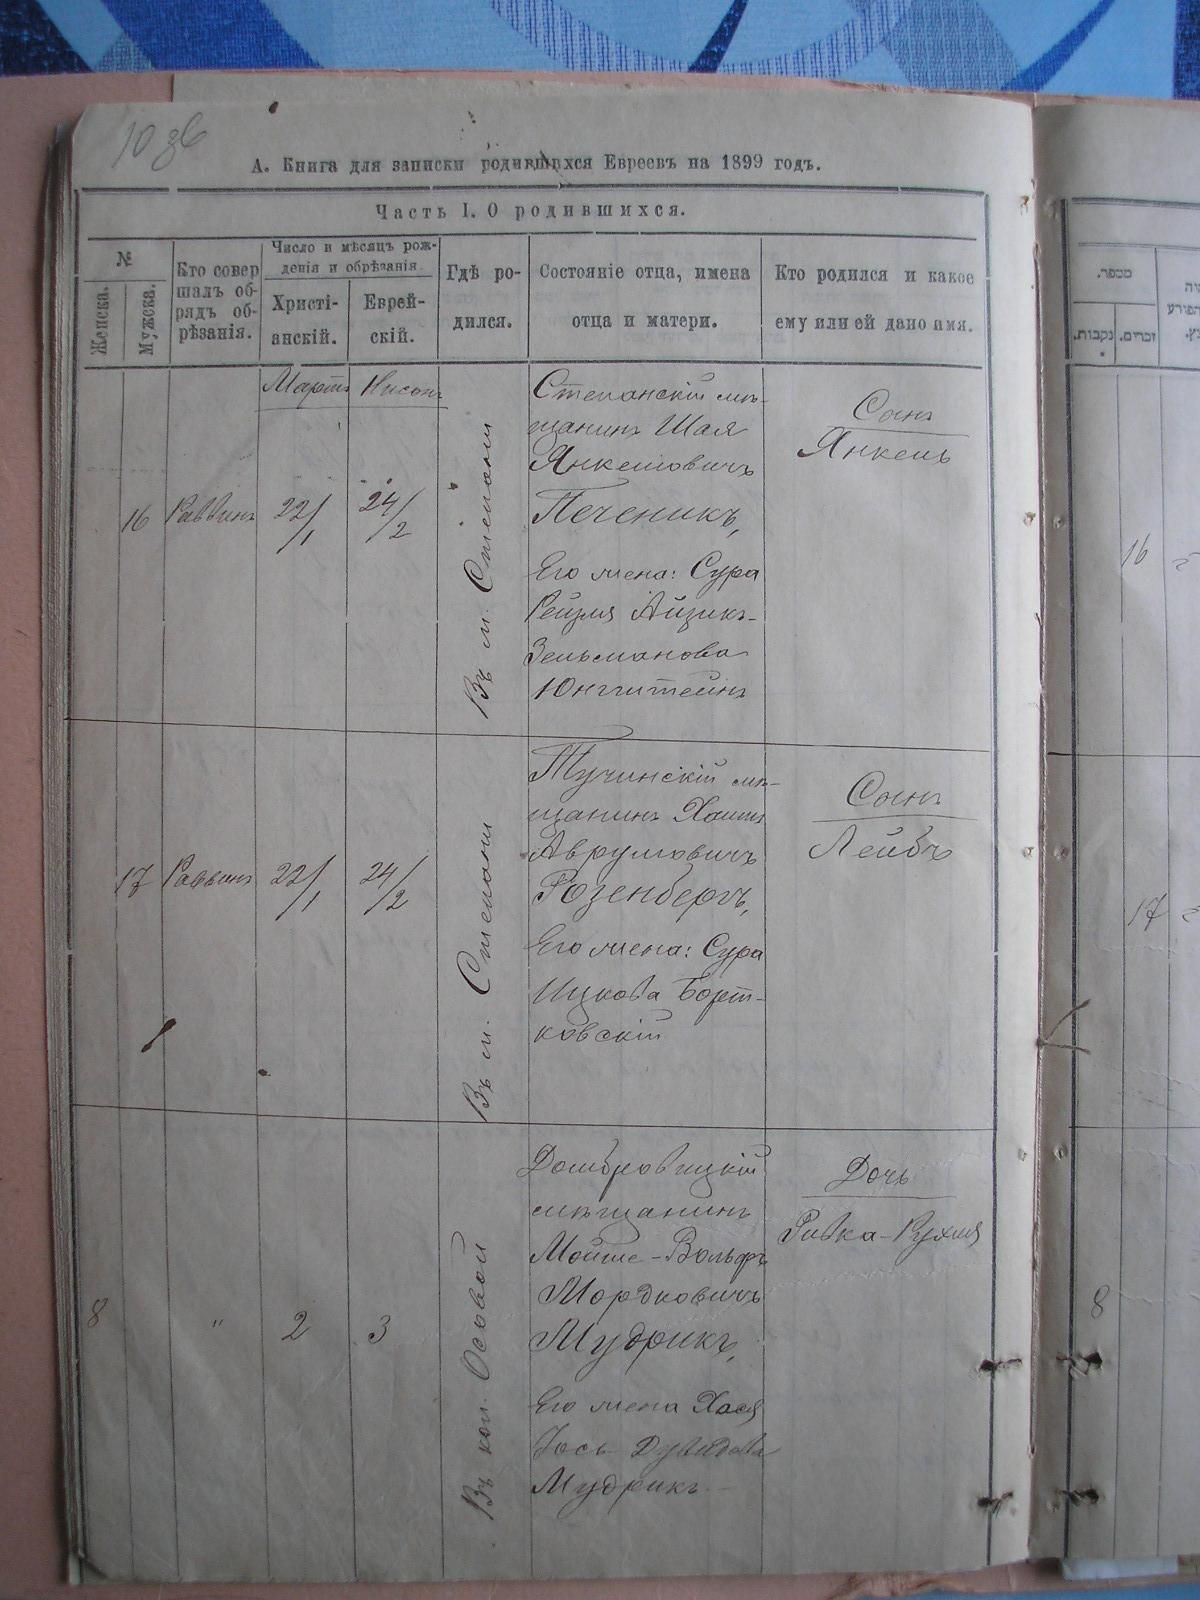 10 зв
А. Книга для записки родившихся Евреевъ на 1899 годъ.
Часть I. О родившихся.
№
Женска.
Мужска.
Кто совер
шалъ об-
рядъ об-
рѣзанія.
Число и мѣсяцъ рож-
денія и обрѣзанія
Христі-
анскій.
Еврей-
скій.
Гдѣ ро-
дился.
Состояніе отца, имена
отца и матери.
Кто родился и какое
ему или ей дано имя.
Мартъ
Нисонъ
16
Раввинъ
22/1
24/2
Въ м. Степани
Степанскій мѣ-
щанинъ Шая
Янкелювичъ
Печеникъ,
Его жена: Сура
Рейзля Айзикъ-
Зельманова
Юнгштейнъ
Сынъ
Янкель
17
Раввинъ
22/1
24/2
Въ м. Степани
Тучинскій мѣ-
щанинъ Хаимъ
Аврумовичъ
Розенбергъ,
Его жена: Сура
Ицкова Борт-
ковскій
Сынъ
Лейбъ
8
"
2
3
Въ кол. Осовой
Домбровицкій
мѣщанинъ
Мойше-Вольфъ
Мордковичъ
Мудрикъ,
Его жена Хася
Дувидова
Мудрикъ
Дочь
Ривка-Рухля
מספר.
נקבות.
זכרים.
16
17
8